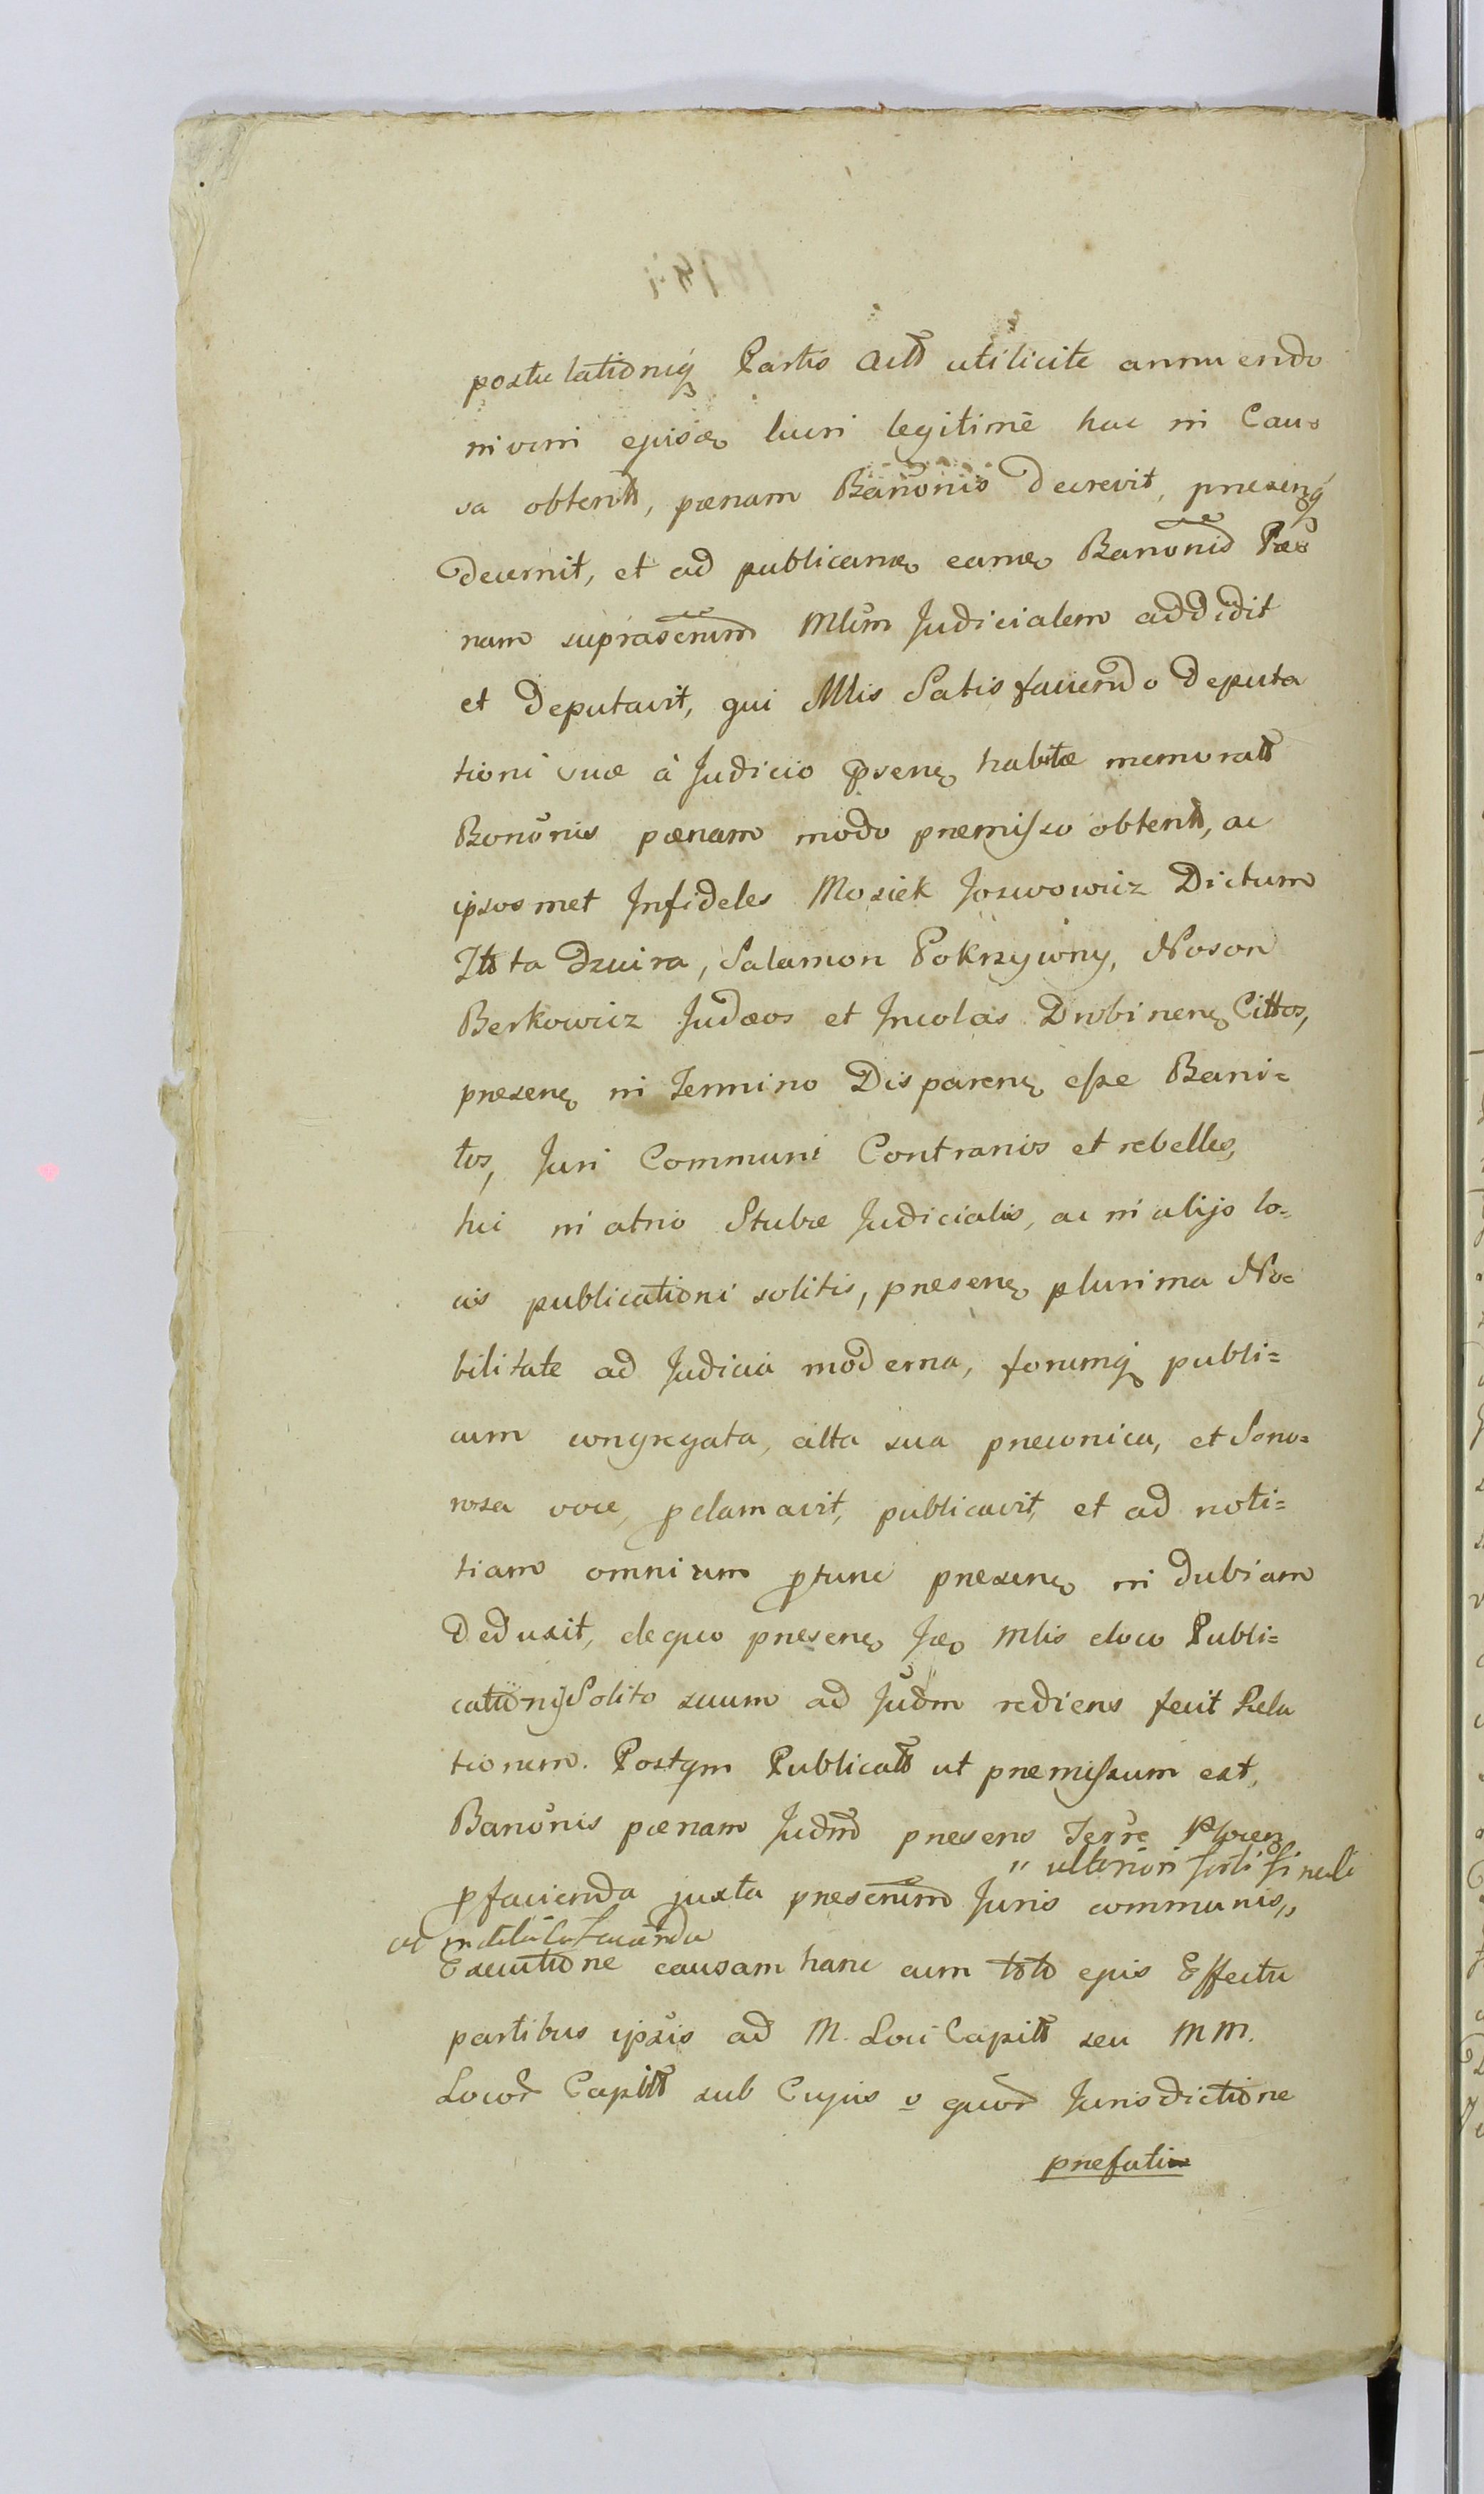 postulationiq Partis Actt utilicite annuendo
in vim ejusdẽ lucri legitimè hac in Cau=
sa obtentt, pœnam Bañonis decrevit, presenq
decernit, et ad publicanđ eanđ Banonis Pœ=
nam suprascrium Mlẽm Judicialem addidit
et Deputavit, qui Mlis Satisfaciendo deputa
tioni suæ à Judicio psenẽ habitæ memoratt
Bononis pœnam modo premisso obtentt, ac
ipsosmet Infideles Mosiek Joswowicz Dictum
Salamon Pokrzywny, Noson
Berkowicz Judæos et Incolas Drobinenẽ Cittos,
presenẽ in Termino Disparenẽ esse Bani=
tos, Juri Communi Contrarios et rebelles,
hic in atrio Stubæ Judicialis, ac in alijs lo=
cis publicationi solitis, presenẽ plurima No=
bilitate ad Judicia moderna, forumq publi=
cum congregata, alta sua preconica, et Sono=
rosa voce, pclamavit, publicavit, et ad noti=
tiam omnium ptunc presenẽ indubiam
Deduxit, dequo presenẽ Mlis eloco Publi=
cationij Solito suum ad Juđm rediens fecit Rela
tionem. Postqm Publicatt ut premissum est,
Banonis pœnam Judm presens Terre Plocen
" ulteriori
pfacienda juxta prescrium Juris communis,,
ac
Executione causam hanc cum toto ejus Effectu
partibus ipsis ad M. Loci Capitt seu MM.
Locoꝝ Capitt sub Cujus v quoꝝ Jurisdictione
prefati